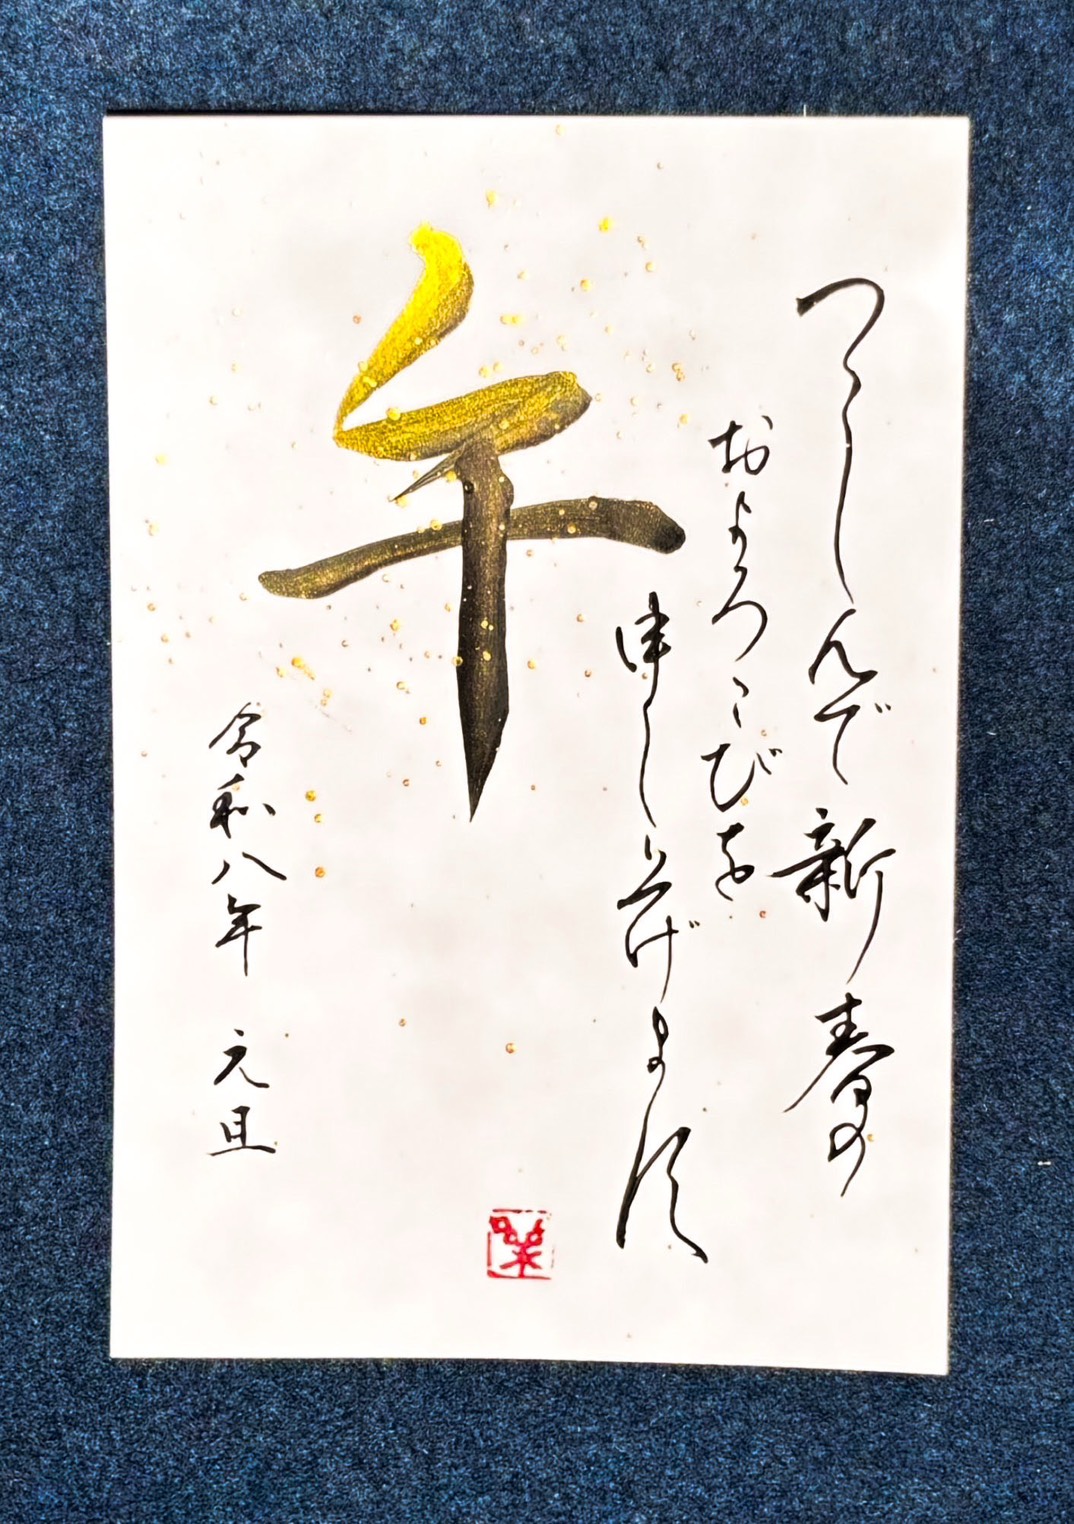 つゝしんで新春の
およろこびを
申し上げます
午
令和八年 元旦